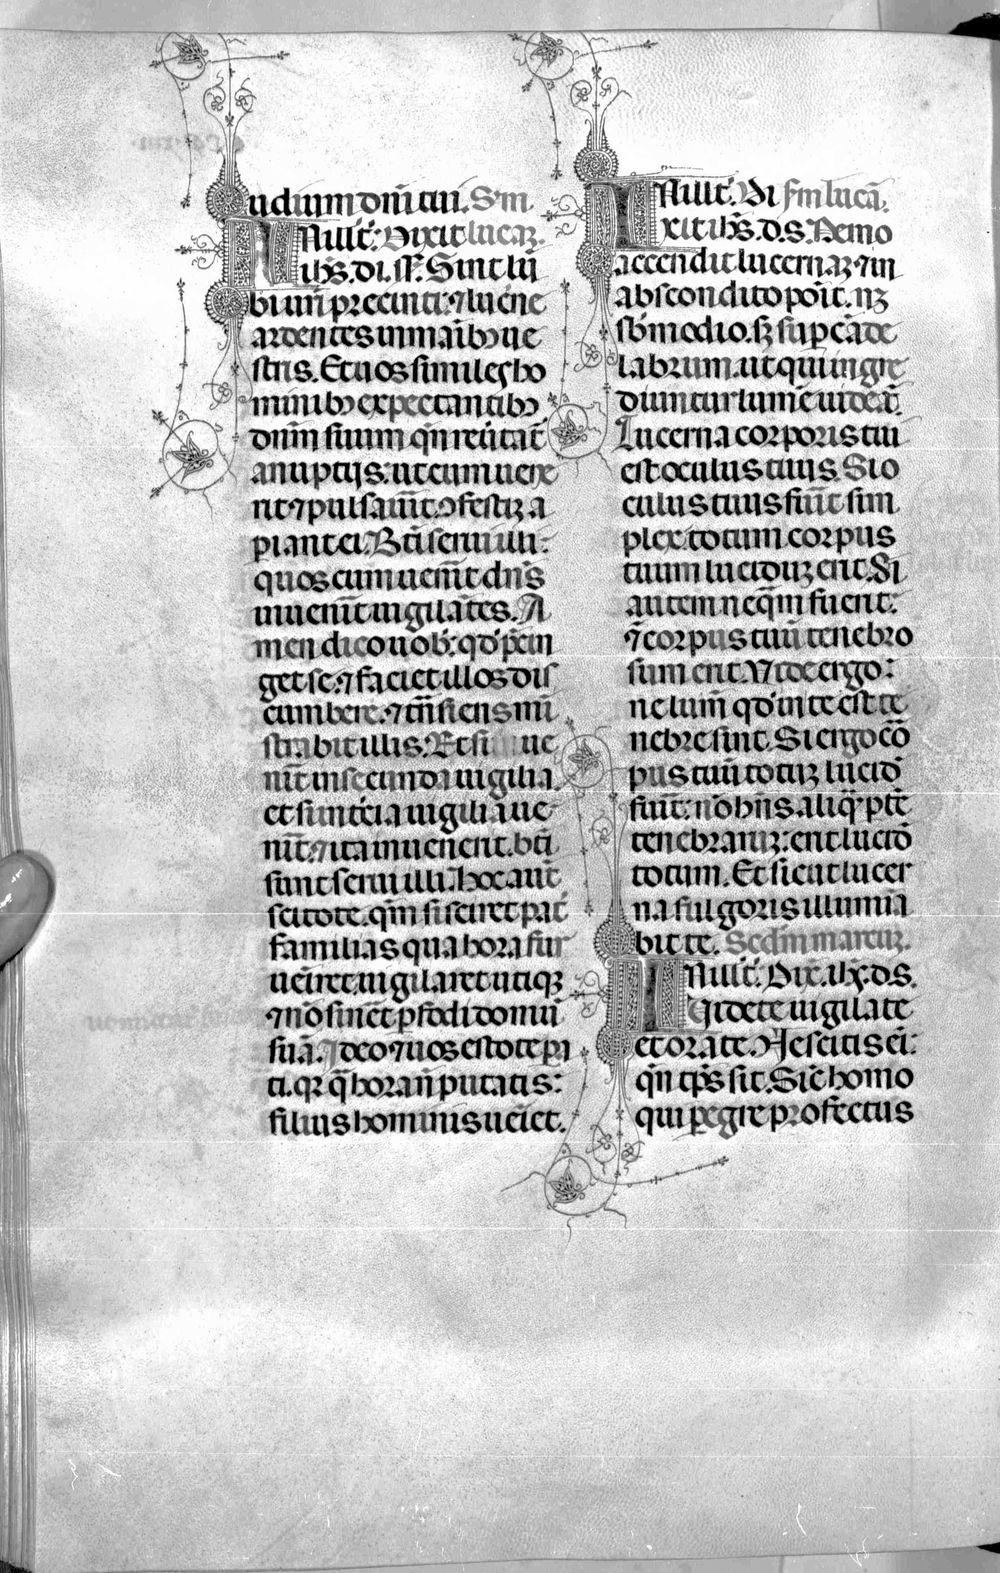 udium dñi tui. Sm
IN illᷓ t̄: Dixit lucaꝫ.
ihs̄. di. ſ. Sint lū
bi urī precincti: ⁊ lucˀne
ardentes in maĩbꝰ ue
stris. Et uos similes ho
minibꝰ expectantibꝰ
dñm suum qñ reuˀtat̄
a nuptijs: ut cum uene
rit ⁊ pulsauit̄: ꝯfestiꝫ a
piant ei. Bt̄i serui illi:
quos cum uenit̄ dn̄s
inuenit̄ uigilãtes. A
men dico uob̄: qđ p̃cin
get se: ⁊ faciet illos dis
cumbere. ⁊ t̃nsiens mĩ
strabit illis. Et si ue
nit̄ in secunda uigilia.
et si in tˀcia uigilia ue
nit̄: ⁊ ita inuenerit. bt̄i
sunt serui illi. Hoc aut̄
scitote. qm̄ si sciret pat̄
familias qua hora fur
ueniret. uigilaret utiqꝫ
⁊ nō sinet̄ ꝑfodi domū
suā. Ideo ⁊ uos estote pa
ti. qꝛ q̄ hora nō putatis:
filius hominis ueniet.
IN illᷓ t̄: Di fm lucā.
xit ihs̄. d. s. Nemo
accendit lucernaꝫ ⁊ in
abscondito poīt. nꝫ
sb̄ modio. sꝫ suꝑ cãde
labrum. ut qui ingre
diuntur lumē uideāt.
Lucerna corporis tui
est oculus tuus. Si o
culus tuus fuit̄ sim
plex. totum corpus
tuum lucidūꝫ erit. Si
autem neq̄m fuerit:
⁊ corpus tuū tenebro
sum erit. Vide ergo:
ne lum̄ qđ in te est te
nebre sint. Si ergo co᷑
pus tuū totuꝫ lucid᷑
fuit̄: nō hn̄s aliq̄ pte᷑
tenebraruꝫ: erit lucid᷑
totum. Et sicut lucer
na fulgoris illumīa
bit te. Scdm̄ marcuꝫ.
IN illᷓ t̄: Dix̄. ihs̄. d. s.
Uidete uigilate
et orate. Nescitis eī:
qñ tp̄s sit. Sic̄ homo
qui ꝑegre profectus